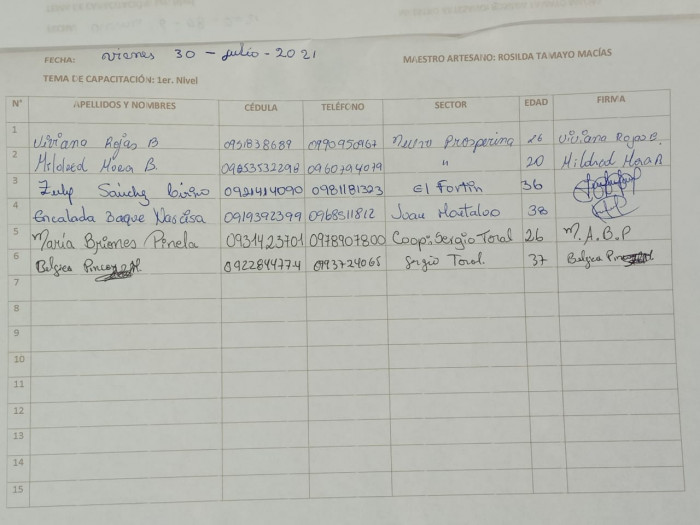 FECHA: viernes 30 - Julio - 2021
MAESTRO ARTESANO: ROSILDA TAMAYO MACÍAS
TEMA DE CAPACITACIÓN: 1er. Nivel
N° APELLIDOS Y NOMBRES CÉDULA TELÉFONO SECTOR EDAD FIRMA
1 Viviana Rojas B 0951838689 0990950967 Prosperina 26 Viviana Rojas B.
2 Mildred Mora B. 0960794079 " 20 Mildred Mora
3 0921414090 0981181323 El Fortín 36
4 Encalada Baque Narcisa 0919392399 0968511812 Juan Montalvo 38
5 María Briones Penela 0931423701 0978907800 Coop. Sergio Toral 26 M.A.B.P
6 Belgica 0922844774 0993724065 Sergio Toral. 37 Belgica
7
8
9
10
11
12
13
14
15